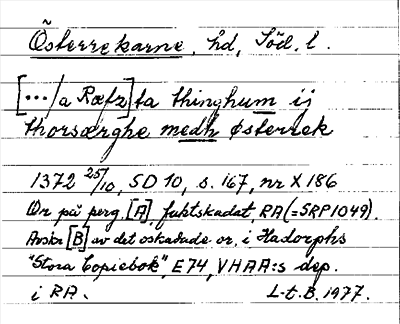 Österrekarne, hd, Söd. l.
[.../a Ræfz]ta thinghum ij
thorsærghe medh østerrek
1372 25/10, SD 10, s. 167, nr X 186
Or på perg. [A], fuktskadat, RA (=SRP 1049).
Avskr [B] av det oskadade or. i Hadorphs
"Stora Copiebok", E 74, VHAA:s dep.
i RA. L-t. B. 1977.